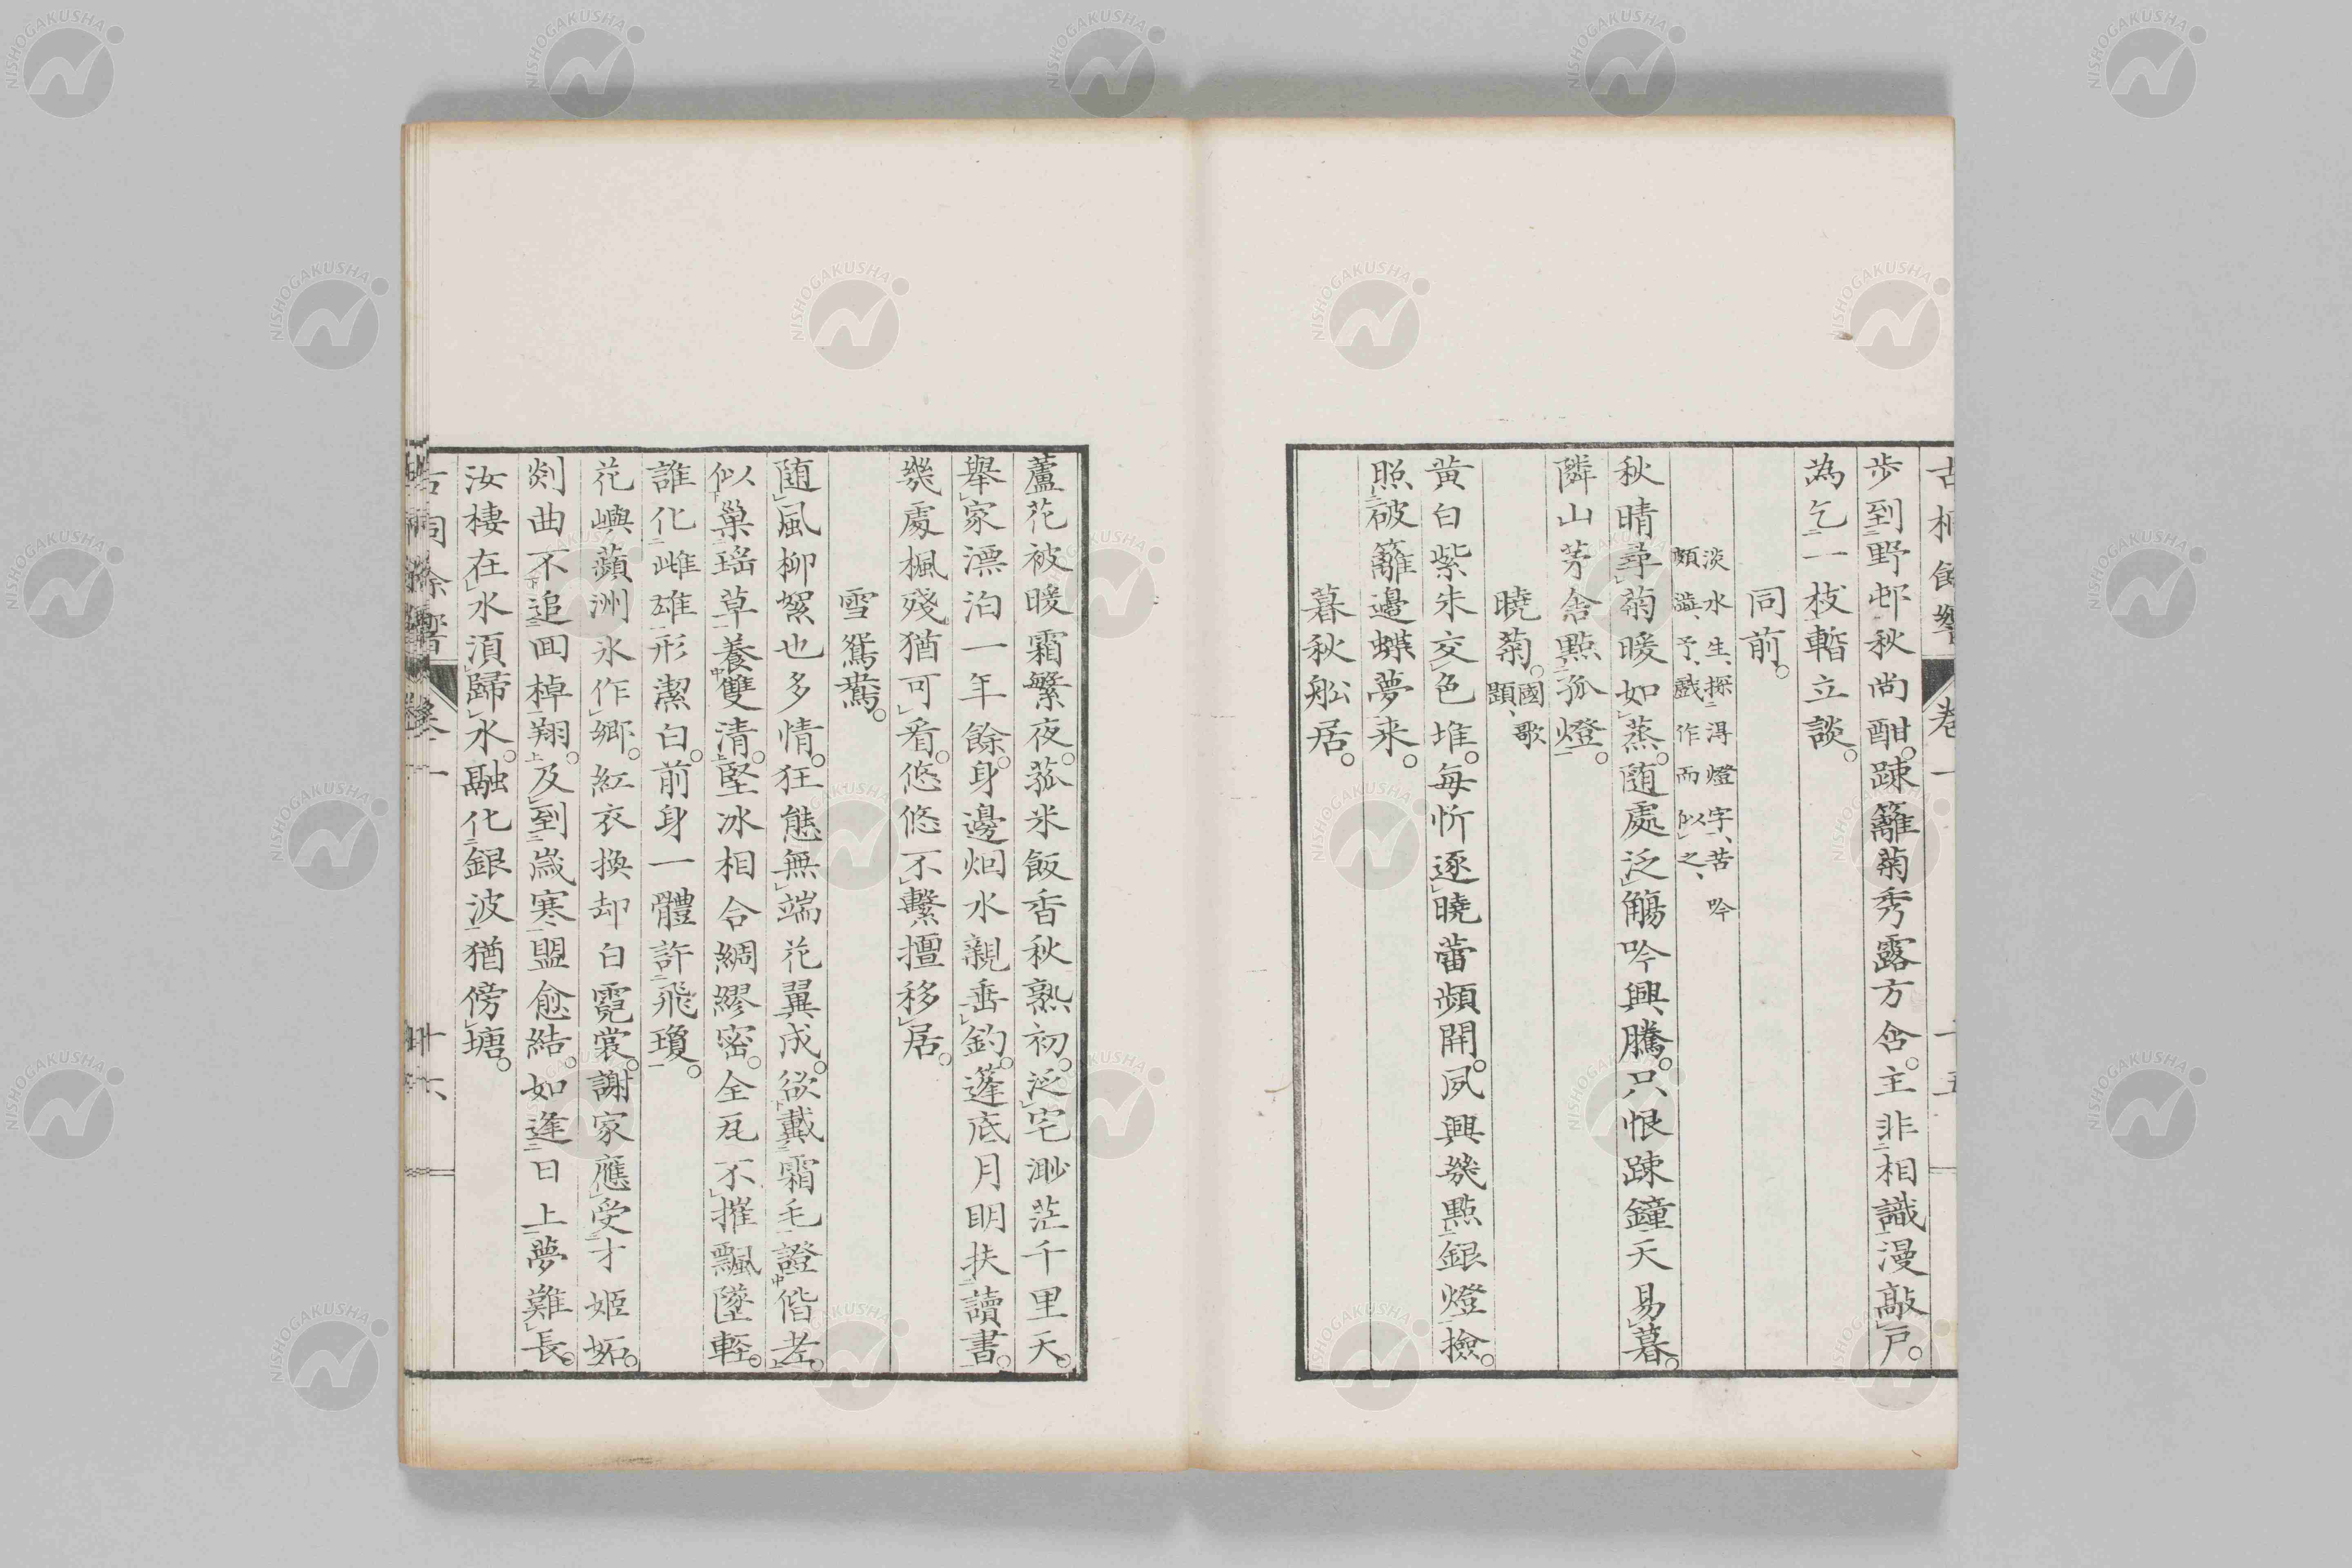 歩到野邨秋尚酣。踈籬菊秀露方含。主非相識漫敲戸。
為乞一枝暫立談。
同前。
淡水生、探得燈字、苦吟
頗溢、予、戯作而似之、
秋晴尋菊暖如蒸。随處泛觴吟興騰。只恨踈鐘天易暮。
隣山茅舎點孤燈。
曉菊。國歌題、
黄白紫朱交色堆。毎忻逐曉蕾頻開。夙興幾點銀燈撿。
照破籬邉蝶夢来。
暮秋舩居。
蘆花被暖霜繁夜。菰米飯香秋熟初。泛宅渺茫千里天。
舉家漂泊一年餘。身邉烟水親垂釣。蓬底月明扶讀書。
幾處楓殘猶可看。悠悠不繫擅移居。
雪鴛鴦。
随風柳絮也多情。狂態無端花翼成。欲戴霜毛證偕老。
似巢瑶草養雙清。堅冰相合綢繆密。全瓦不摧飄墜輕。
誰化雌雄形潔白。前身一體許飛瓊。
花嶼蘋洲氷作郷。紅衣換却白霓裳。謝家應受才姬妬。
剡曲不追回棹翔。及到歳寒盟愈結。如逢日上夢難長。
汝棲在水湏歸水。融化銀波猶傍塘。